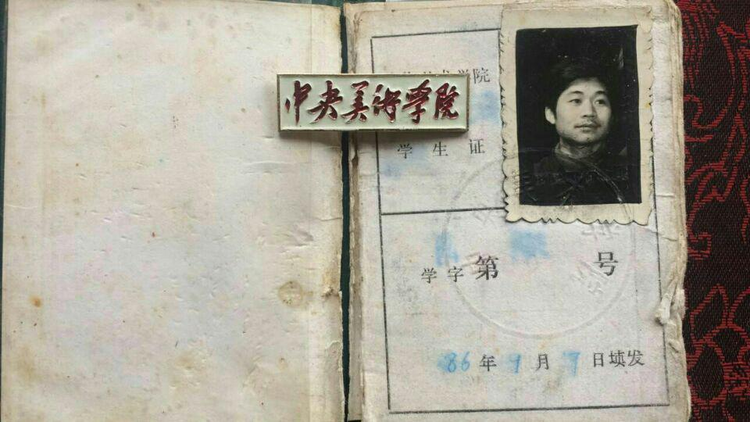 中央美術学院
学院
学生证
学字第 号
86年9月7日填发